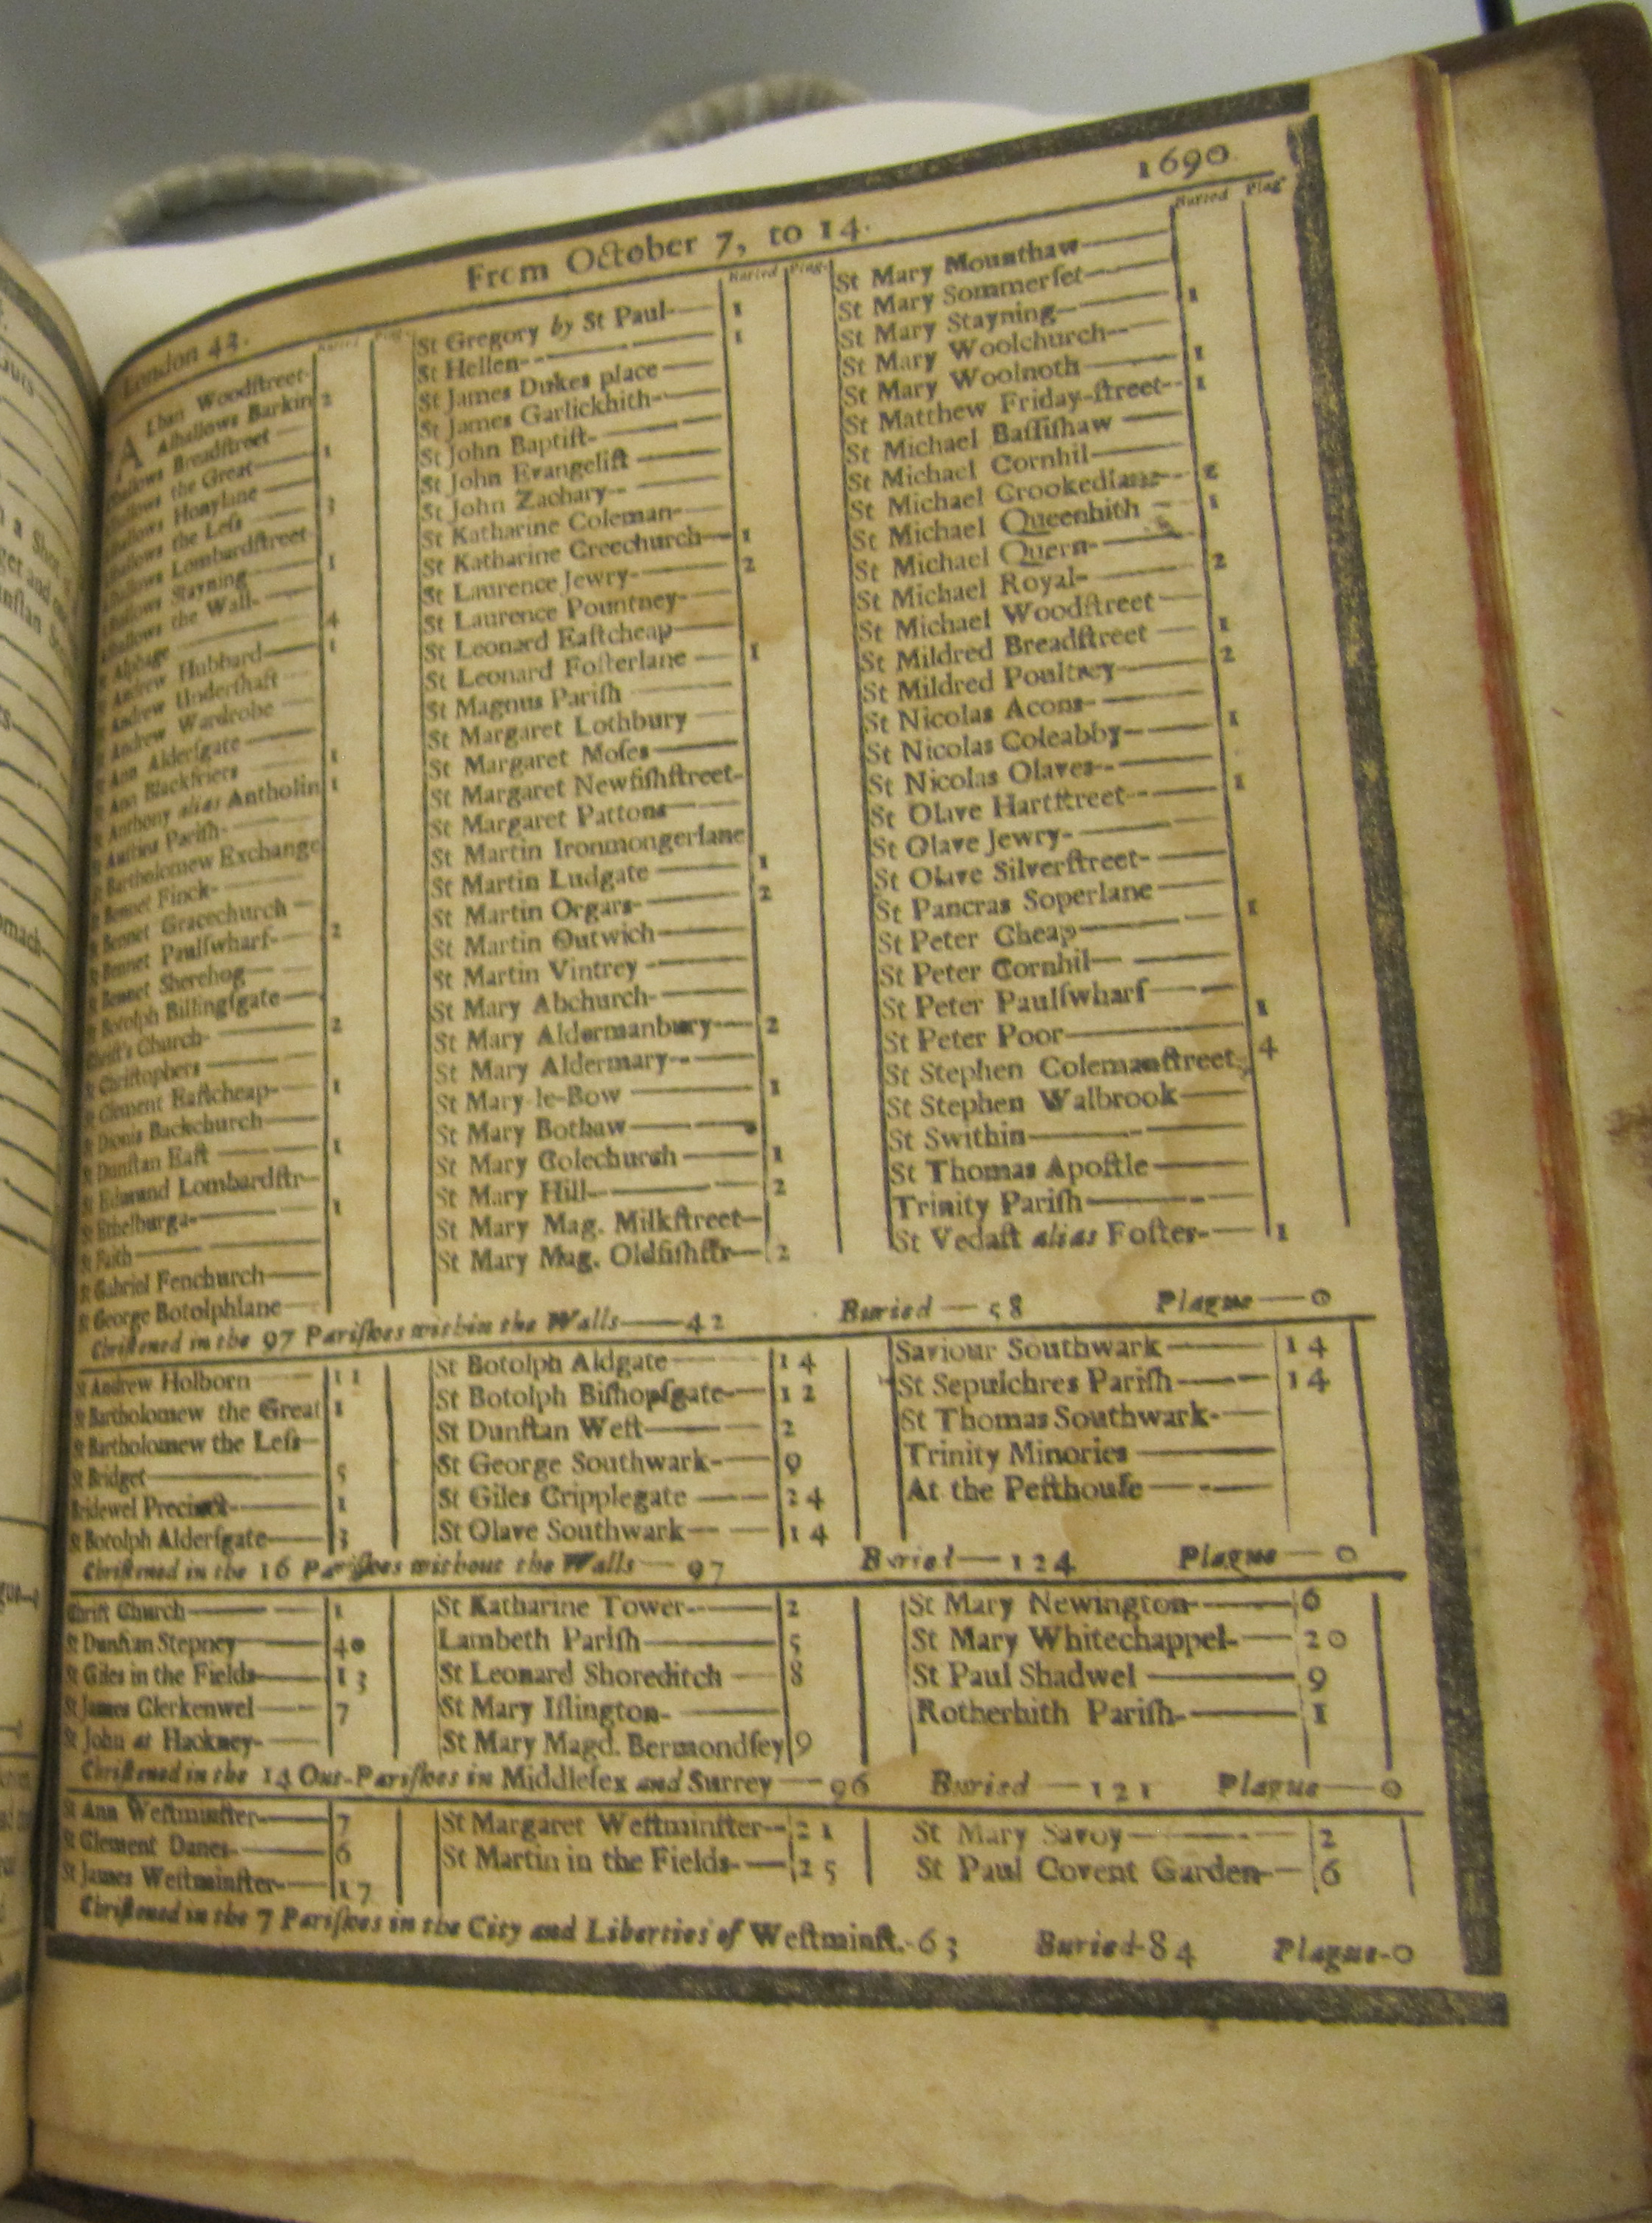 1690
From October 7, to 14.
London 42.
Buried Plag.
ALban Woodſtreet-
Alhallows Barkin 2
Alhallows Breadſtreet —
Alhallows the Great— 1
Alhallows Honylane —
Alhallows the Leſs — 3
Alhallows Lombardſtreet
Alhallows Stayning— 1
Alhallows the Wall-
St Alphage — 4
St Andrew Hubbard— 1
St Andrew Underſhaft
St Andrew Wardrobe —
St Ann Alderſgate —
St Ann Blackfriers — 1
St Anthony alias Antholin 1
St Auſtins Pariſh-
St Bartholomew Exchange
St Bennet Finck-
St Bennet Gracechurch —
St Bennet Paulſwharf- 2
St Bennet Sherehog—
St Botolph Billingſgate—
Chriſt's Church- 2
St Chriſtophers —
St Clement Eaſtcheap- 1
St Dionis Backchurch—
St Dunſtan Eaſt — 1
St Edmund Lombardſtr—
St Ethelburga- 1
St Faith—
St Gabriel Fenchurch—
St George Botolphlane—
Buried Plag.
St Gregory by St Paul— 1
St Hellen- 1
St James Dukes place —
St James Garlickhith-
St John Baptiſt-
St John Evangeliſt —
St John Zachary--
St Katharine Coleman-
St Katharine Creechurch— 1
St Laurence Jewry- 2
St Laurence Pountney-
St Leonard Eaſtcheap—
St Leonard Foſterlane — 1
St Magnus Pariſh —
St Margaret Lothbury —
St Margaret Moſes—
St Margaret Newfiſhſtreet-
St Margaret Pattons—
St Martin Ironmongerlane
St Martin Ludgate — 1
St Martin Orgars- 2
St Martin Outwich—
St Martin Vintrey —
St Mary Abchurch-
St Mary Aldermanbury— 2
St Mary Aldermary--
St Mary le-Bow — 1
St Mary Bothaw—
St Mary Colechurch — 1
St Mary Hill- 2
St Mary Mag. Milkſtreet—
St Mary Mag. Oldfiſhſtr— 2
Buried Plag.
St Mary Mounthaw—
St Mary Sommerſet—
St Mary Stayning— 1
St Mary Woolchurch—
St Mary Woolnoth— 1
St Matthew Friday-ſtreet-- 1
St Michael Baſſiſhaw —
St Michael Cornhil—
St Michael Crookedlane- 2
St Michael Queenhith — 1
St Michael Quern-
St Michael Royal- 2
St Michael Woodſtreet —
St Mildred Breadſtreet — 1
St Mildred Poultrey— 2
St Nicolas Acons-
St Nicolas Coleabby— 1
St Nicolas Olaves--
St Olave Hartſtreet-- 1
St Olave Jewry-
St Olave Silverſtreet-
St Pancras Soperlane —
St Peter Cheap— 1
St Peter Cornhil—
St Peter Paulſwharf —
St Peter Poor— 1
St Stephen Colemanſtreet 4
St Stephen Walbrook—
St Swithin—
St Thomas Apoſtle—
Trinity Pariſh—
St Vedaſt alias Foſter- 1
Chriſtened in the 97 Pariſhes within the Walls—42 Buried—58 Plague—0
St Andrew Holborn — 11
St Bartholomew the Great 1
St Bartholomew the Leſs—
St Bridget— 5
Bridewel Precinct— 1
St Botolph Alderſgate— 3
St Botolph Aldgate— 14
St Botolph Biſhopſgate— 12
St Dunſtan Weſt— 2
St George Southwark- 9
St Giles Cripplegate — 24
St Olave Southwark— 14
Saviour Southwark— 14
St Sepulchres Pariſh— 14
St Thomas Southwark-
Trinity Minories —
At the Peſthouſe—
Chriſtened in the 16 Pariſhes without the Walls—97 Buried—124 Plague—0
Chriſt Church— 1
St Dunſtan Stepney— 40
St Giles in the Fields— 13
St James Clerkenwel— 7
St John at Hackney-
St Katharine Tower-- 2
Lambeth Pariſh— 5
St Leonard Shoreditch — 8
St Mary Iſlington-
St Mary Magd. Bermondſey 9
St Mary Newington— 6
St Mary Whitechappel- 20
St Paul Shadwel — 9
Rotherhith Pariſh- 1
Chriſtened in the 14 Out-Pariſhes in Middleſex and Surrey—96 Buried—121 Plague—0
St Ann Weſtminſter— 7
St Clement Danes- 6
St James Weſtminſter- 17
St Margaret Weſtminſter-- 21
St Martin in the Fields- 25
St Mary Savoy— 2
St Paul Covent Garden— 6
Chriſtened in the 7 Pariſhes in the City and Liberties of Weſtminſt.-63 Buried-84 Plague-0